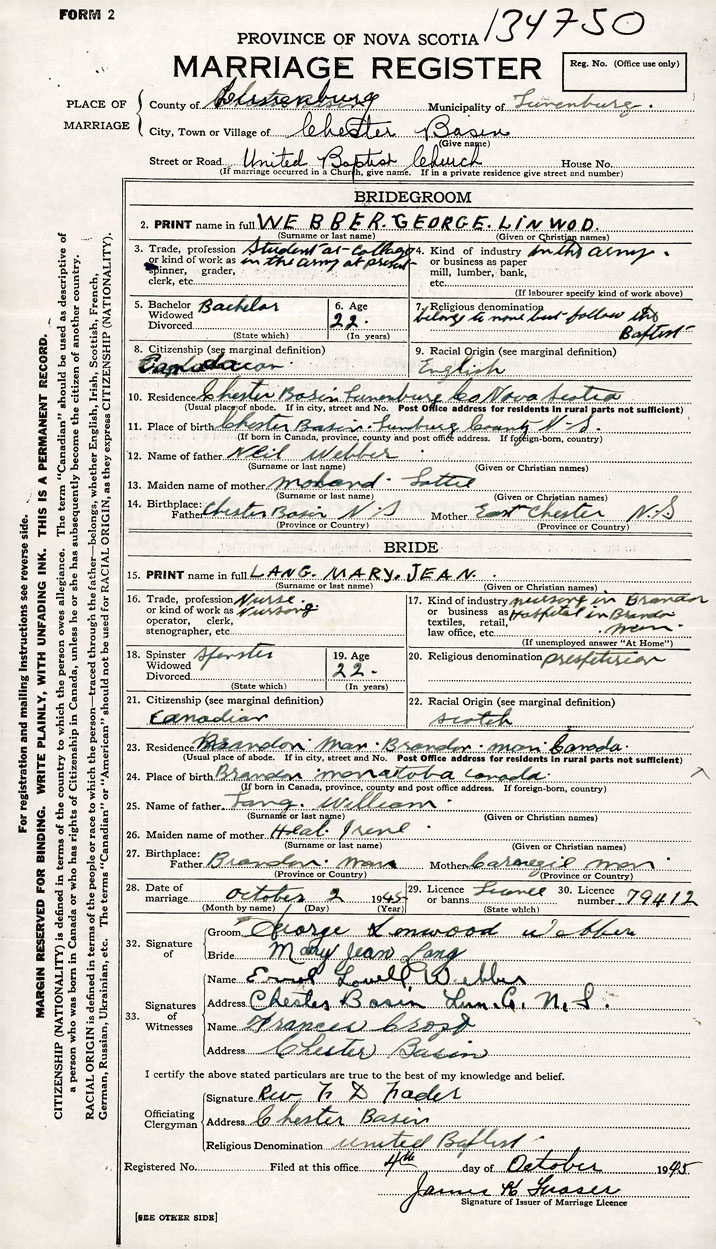 FORM 2
134750
PROVINCE OF NOVA SCOTIA
MARRIAGE REGISTER
Reg. No. (Office use only)
PLACE OF MARRIAGE
County of Municipality of Lunenburg.
City, Town or Village of Chester Basin
(Give name)
Street or Road United Baptist Church House No.
(If marriage occurred in a Church, give name. If in a private residence give street and number)
BRIDEGROOM
2. PRINT name in full WEBBER. GEORGE. LINWOD.
(Surname or last name) (Given or Christian names)
3. Trade, profession or kind of work as spinner, grader, clerk, etc. Student at Collage in the army at present
4. Kind of industry or business as paper mill, lumber, bank, etc. in the army.
(If labourer specify kind of work above)
5. Bachelor Widowed Divorced Bachelor
(State which)
6. Age 22.
(In years)
7. Religious denomination belongs to none but follow the Baptist
8. Citizenship (see marginal definition)
Canadian
9. Racial Origin (see marginal definition)
English
10. Residence Chester Basin Lunenburg Co Nova Scotia
(Usual place of abode. If in city, street and No. Post Office address for residents in rural parts not sufficient)
11. Place of birth Chester Basin County N-S.
(If born in Canada, province, county and post office address. If foreign-born, country)
12. Name of father Neil Webber
(Surname or last name) (Given or Christian names)
13. Maiden name of mother Lottie
(Surname or last name) (Given or Christian names)
14. Birthplace: Father Chester Basin N.S Mother East Chester N.S
(Province or Country) (Province or Country)
BRIDE
15. PRINT name in full LANG. MARY. JEAN.
(Surname or last name) (Given or Christian names)
16. Trade, profession or kind of work as operator, clerk, stenographer, etc. Nurse. Nursong
17. Kind of industry or business as textiles, retail, law office, etc. nursong in Brandon Hospital in Brandon man.
(If unemployed answer "At Home")
18. Spinster Widowed Divorced Spenster
(State which)
19. Age 22.
(In years)
20. Religious denomination prespeterian
21. Citizenship (see marginal definition)
Canadian
22. Racial Origin (see marginal definition)
Scotch
23. Residence Brandon man. Brandon. man Canada.
(Usual place of abode. If in city, street and No. Post Office address for residents in rural parts not sufficient)
24. Place of birth Brandon manatoba Canada.
(If born in Canada, province, county and post office address. If foreign-born, country)
25. Name of father Lang. William.
(Surname or last name) (Given or Christian names)
26. Maiden name of mother Heal. Irene
(Surname or last name) (Given or Christian names)
27. Birthplace: Father Brandon. Man Mother Carnegie man
(Province or Country) (Province or Country)
28. Date of marriage October 2 1945
(Month by name) (Day) (Year)
29. Licence or banns
(State which)
30. Licence number 79412
32. Signature of
Groom George Linwood Webber
Bride Mary Jean Lang
33. Signatures of Witnesses
Name Errol Lovell Webber
Address Chester Basin Lun. Co. N. S.
Name Frances
Address Chester Basin
I certify the above stated particulars are true to the best of my knowledge and belief.
Officiating Clergyman
Signature Rev
Address Chester Basin
Religious Denomination United Baptist
Registered No. Filed at this office 4th day of October 1945
James
Signature of Issuer of Marriage Licence
[SEE OTHER SIDE]
For registration and mailing instructions see reverse side.
MARGIN RESERVED FOR BINDING. WRITE PLAINLY, WITH UNFADING INK. THIS IS A PERMANENT RECORD.
CITIZENSHIP (NATIONALITY) is defined in terms of the country to which the person owes allegiance. The term "Canadian" should be used as descriptive of
a person who was born in Canada or who has rights of Citizenship in Canada, unless he or she has subsequently become the citizen of another country.
RACIAL ORIGIN is defined in terms of the people or race to which the person—traced through the father—belongs, whether English, Irish, Scottish, French,
German, Russian, Ukrainian, etc. The terms "Canadian" or "American" should not be used for RACIAL ORIGIN, as they express CITIZENSHIP (NATIONALITY).